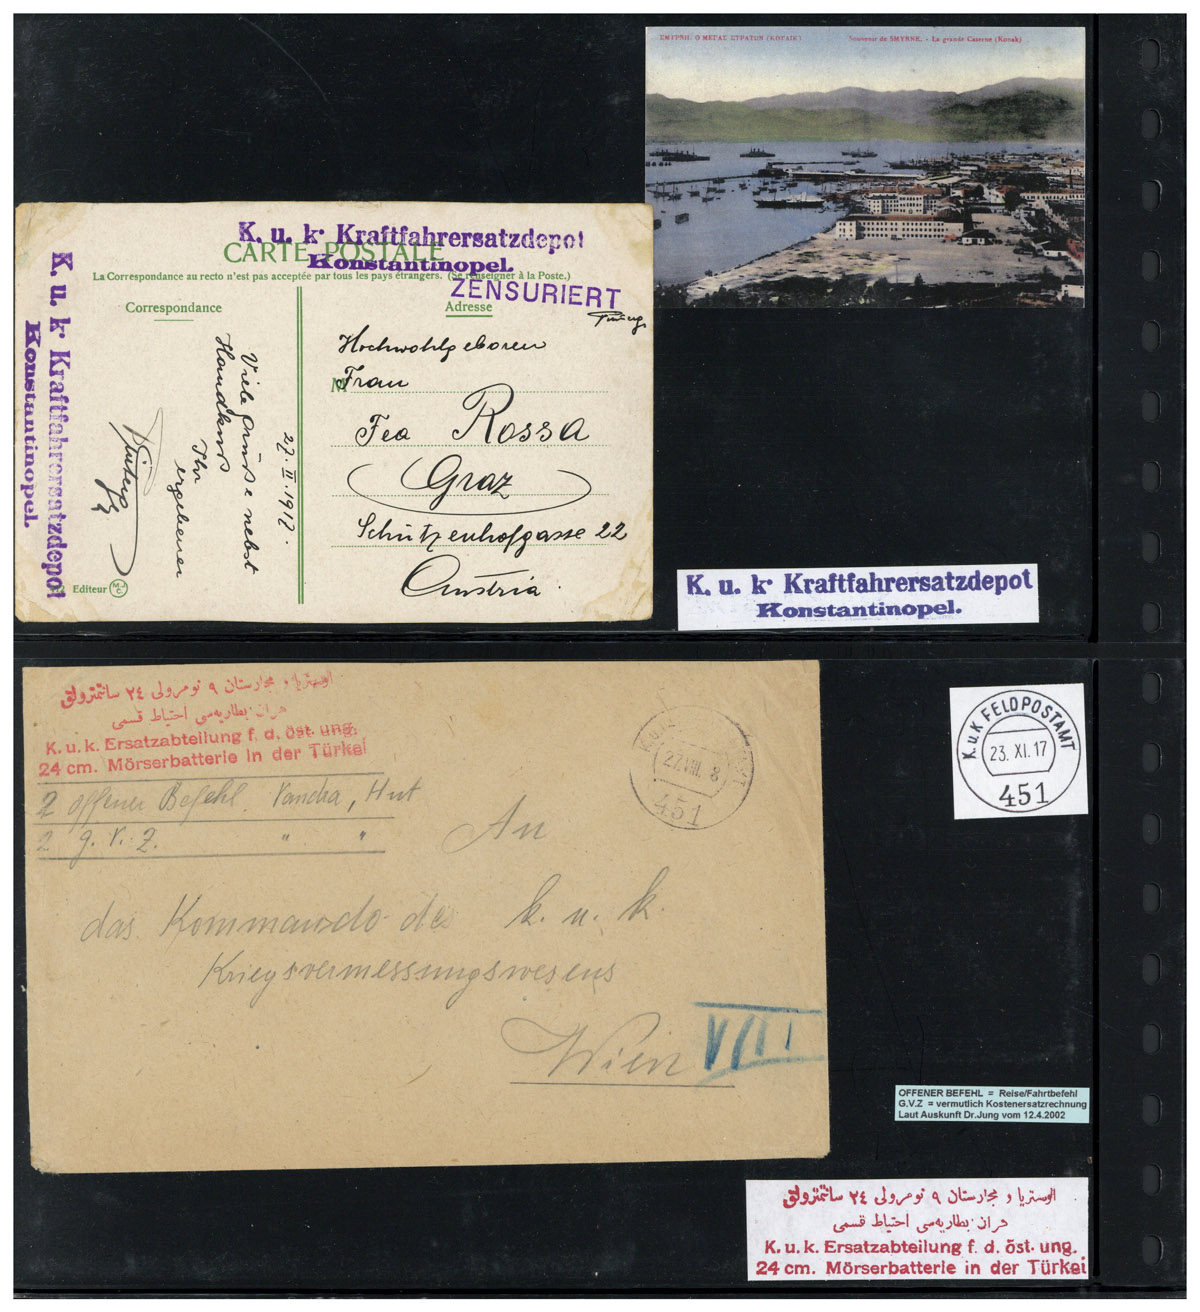 ΣΜΥΡΝΗ. Ο ΜΕΓΑΣ ΣΤΡΑΤΩΝ (ΚΟΝΑΚ)
Souvenir de SMYRNE. - La grande Caserne (Konak)
K. u. k. Kraftfahrersatzdepot
Konstantinopel.
CARTE POSTALE
La Correspondance au recto n'est pas acceptée par tous les pays étrangers. (Se renseigner à la Poste.)
ZENSURIERT
Correspondance
Adresse
Hochwohlgeboren
M
Frau
Fea Rossa
Graz
Schützenhofgasse 22
Austria.
27. II. 1912.
Viele Grüße nebst
Handkuß
Ihr
ergebener
K. u. k. Kraftfahrersatzdepot
Konstantinopel.
Editeur M.J.C.
K. u. k. Kraftfahrersatzdepot
Konstantinopel.
اوستريا و مجارستان ٩ نومرولى ٢٤ سانتمترولق
هاون بطاريه‌سى احتياط قسمى
K. u. k. Ersatzabteilung f. d. öst. ung.
24 cm. Mörserbatterie in der Türkei
2 offener Befehl Vancha, Hut
2 g. V. Z. " "
27. VIII. 8
451
An
das Kommando des k. u. k.
Kriegsvermessungswesens
Wien
VIII
K. u. K FELDPOSTAMT
23. XI. 17
451
OFFENER BEFEHL = Reise/Fahrtbefehl
G.V.Z = vermutlich Kostenersatzrechnung
Laut Auskunft Dr.Jung vom 12.4.2002
اوستريا و مجارستان ٩ نومرولى ٢٤ سانتمترولق
هاون بطاريه‌سى احتياط قسمى
K. u. k. Ersatzabteilung f. d. öst. ung.
24 cm. Mörserbatterie in der Türkei